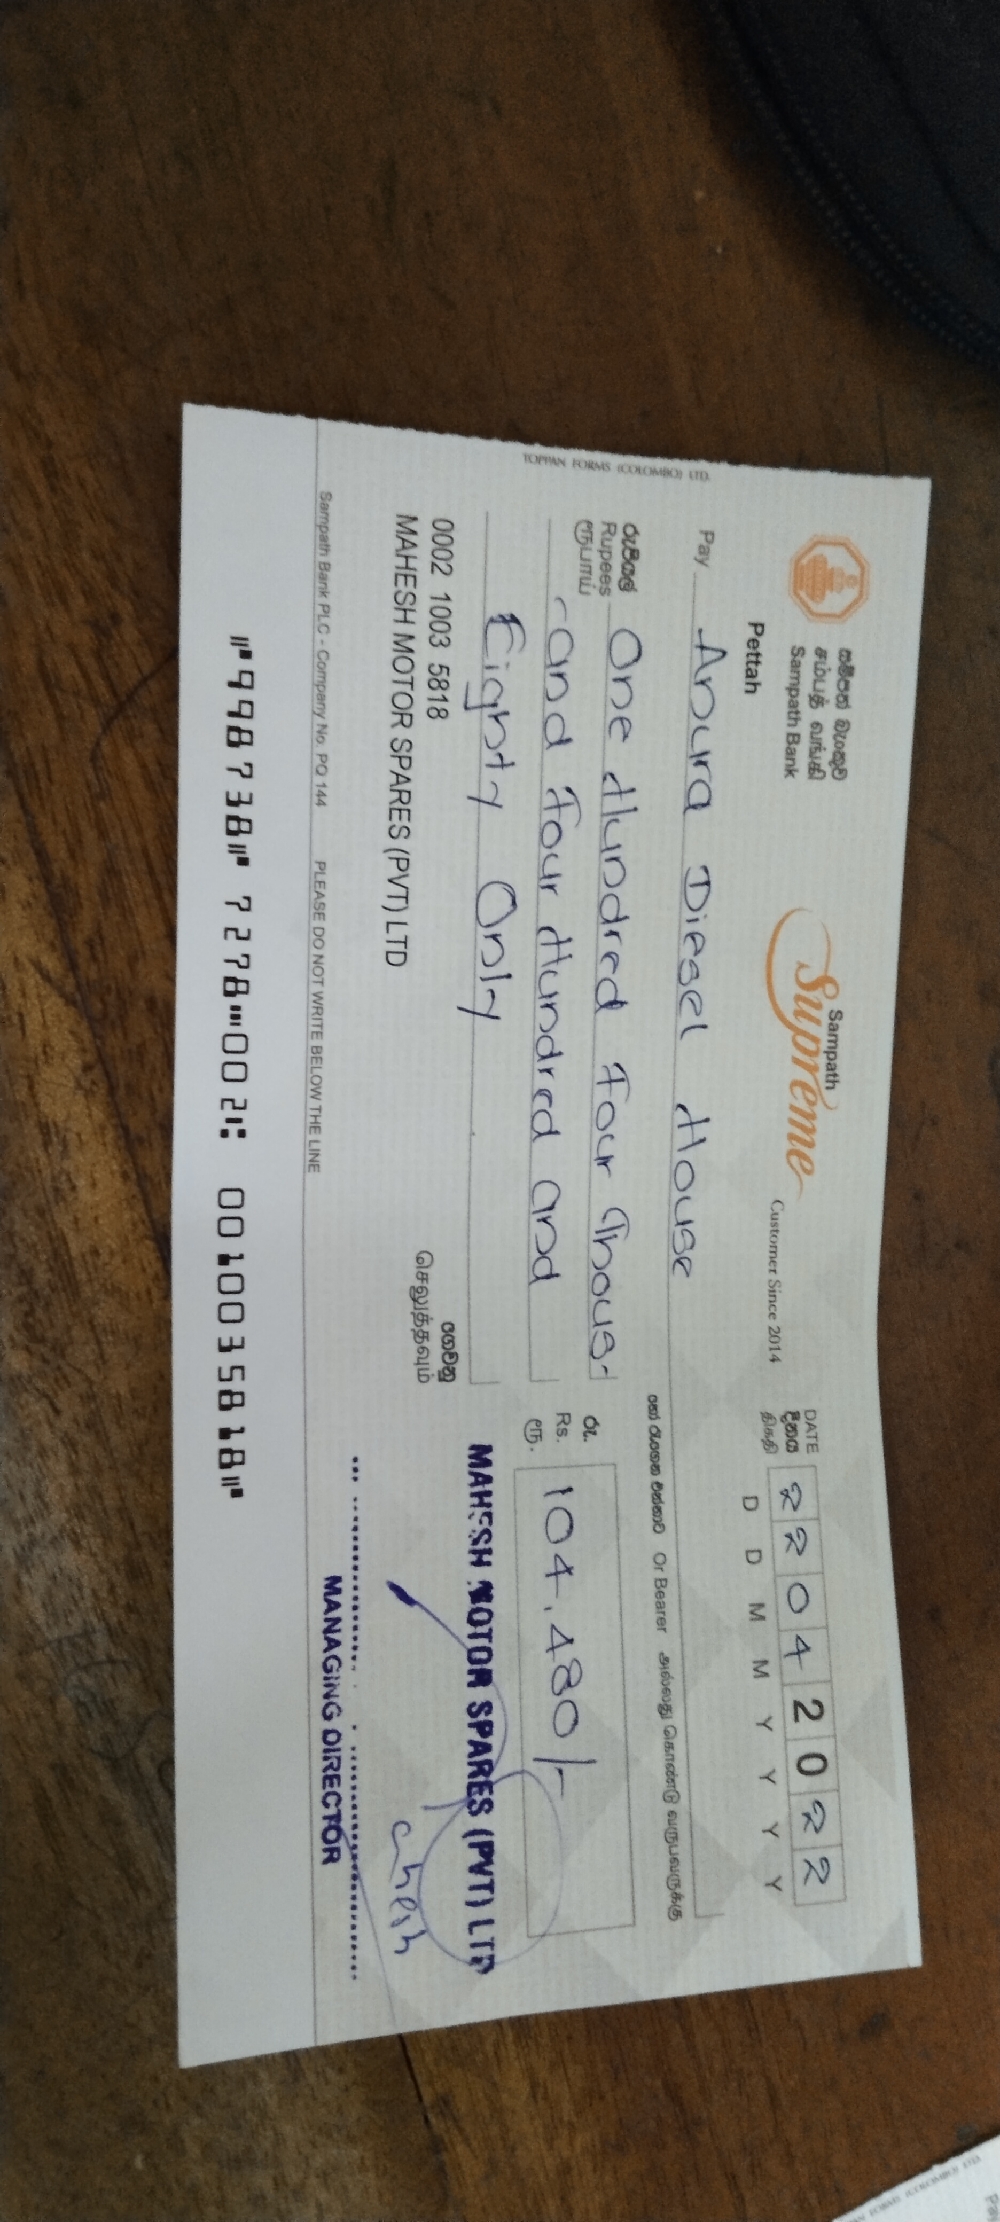 TOPPAN FORMS (COLOMBO) LTD.
සම්පත් බැංකුව
சம்பத் வங்கி
Sampath Bank
Pettah
Sampath
Supreme
Customer Since 2014
DATE
දිනය
திகதி
2 2 0 4 2 0 2 2
D D M M Y Y Y Y
Pay Anura Diesel House
හෝ රැගෙන එන්නාට Or Bearer அல்லது கொண்டு வருபவருக்கு
රුපියල්
Rupees
ரூபாய்
One Hundred Four Thous-
-and Four Hundred and
Eighty Only
රු.
Rs.
ரூ.
104,480/-
ගෙවනු
செலுத்தவும்
0002 1003 5818
MAHESH MOTOR SPARES (PVT) LTD
MAHESH MOTOR SPARES (PVT) LTD
MANAGING DIRECTOR
Sampath Bank PLC - Company No. PQ 144 PLEASE DO NOT WRITE BELOW THE LINE
⑈998738⑈ 7278⑉002⑆ 00100358 18⑈
TOPPAN FORMS (COLOMBO) LTD.